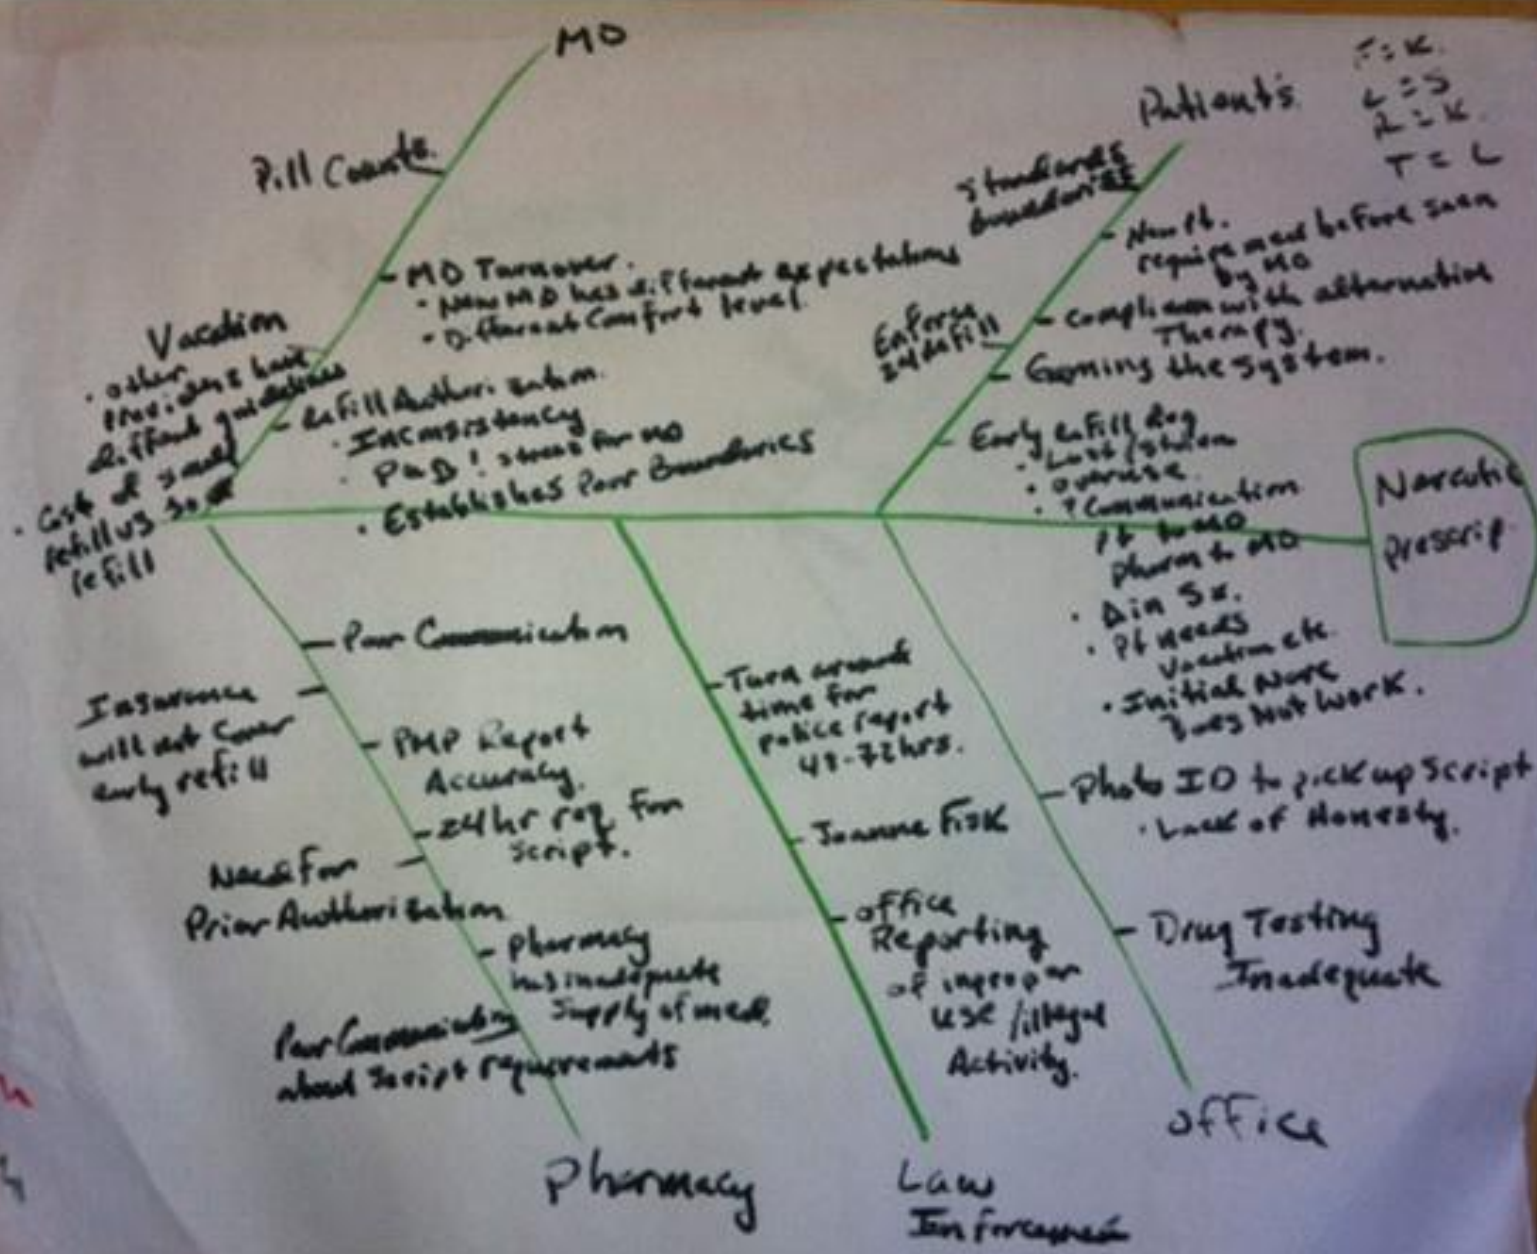 MD
Pill Counts.
- MD Turnover.
• New MD has different expectations
• Different Comfort level
Vacation
• other
providers have
diffant guidelines
• Cost of small
refill vs
refill
- Refill Authorization.
• Inconsistency
• P&D! stress for MD
• Establishes Poor Boundaries
Patients
T = L
standards
boundaries
- New pt.
require med before seen
by MD
- compliance with alternative
Therapy.
Enforce
- Gaming the system.
- Early Refill Req
• Lost/stolen
• overuse
• ? Communication
Pt to MD
pharm to MD
• Δ in Sx.
• Pt needs
Vacation etc.
• Initial Narc
Does Not Work.
Narcotic
prescrip
- Poor Communication
Insurance -
will not cover
early refill
- PMP Report
Accuracy.
- 24 hr req for
script.
Need for -
Prior Authorization
- pharmacy
has inadequate
supply of med.
Poor Communication
about script requirements
Pharmacy
- Turn around
time for
police report
48-72 hrs.
- Joanne Fisk
- office
Reporting
of inpropar
use / illegal
Activity.
Law
Enforcement
- Photo ID to pick up Script
• Lack of Honesty.
- Drug Testing
Inadequate
office